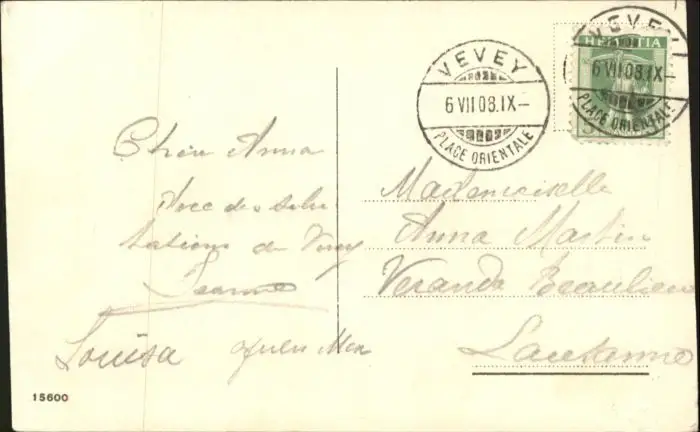 VEVEY
6 VII 08. IX–
PLACE ORIENTALE
VEVEY
HELVETIA
6 VII 08. IX–
PLACE ORIENTALE
Chère Anna
Avec des salu
tations de Vevey
Jeanne
Louisa
Mademoiselle
Anna Martin
Veranda Beaulieu
Lausanne
15600